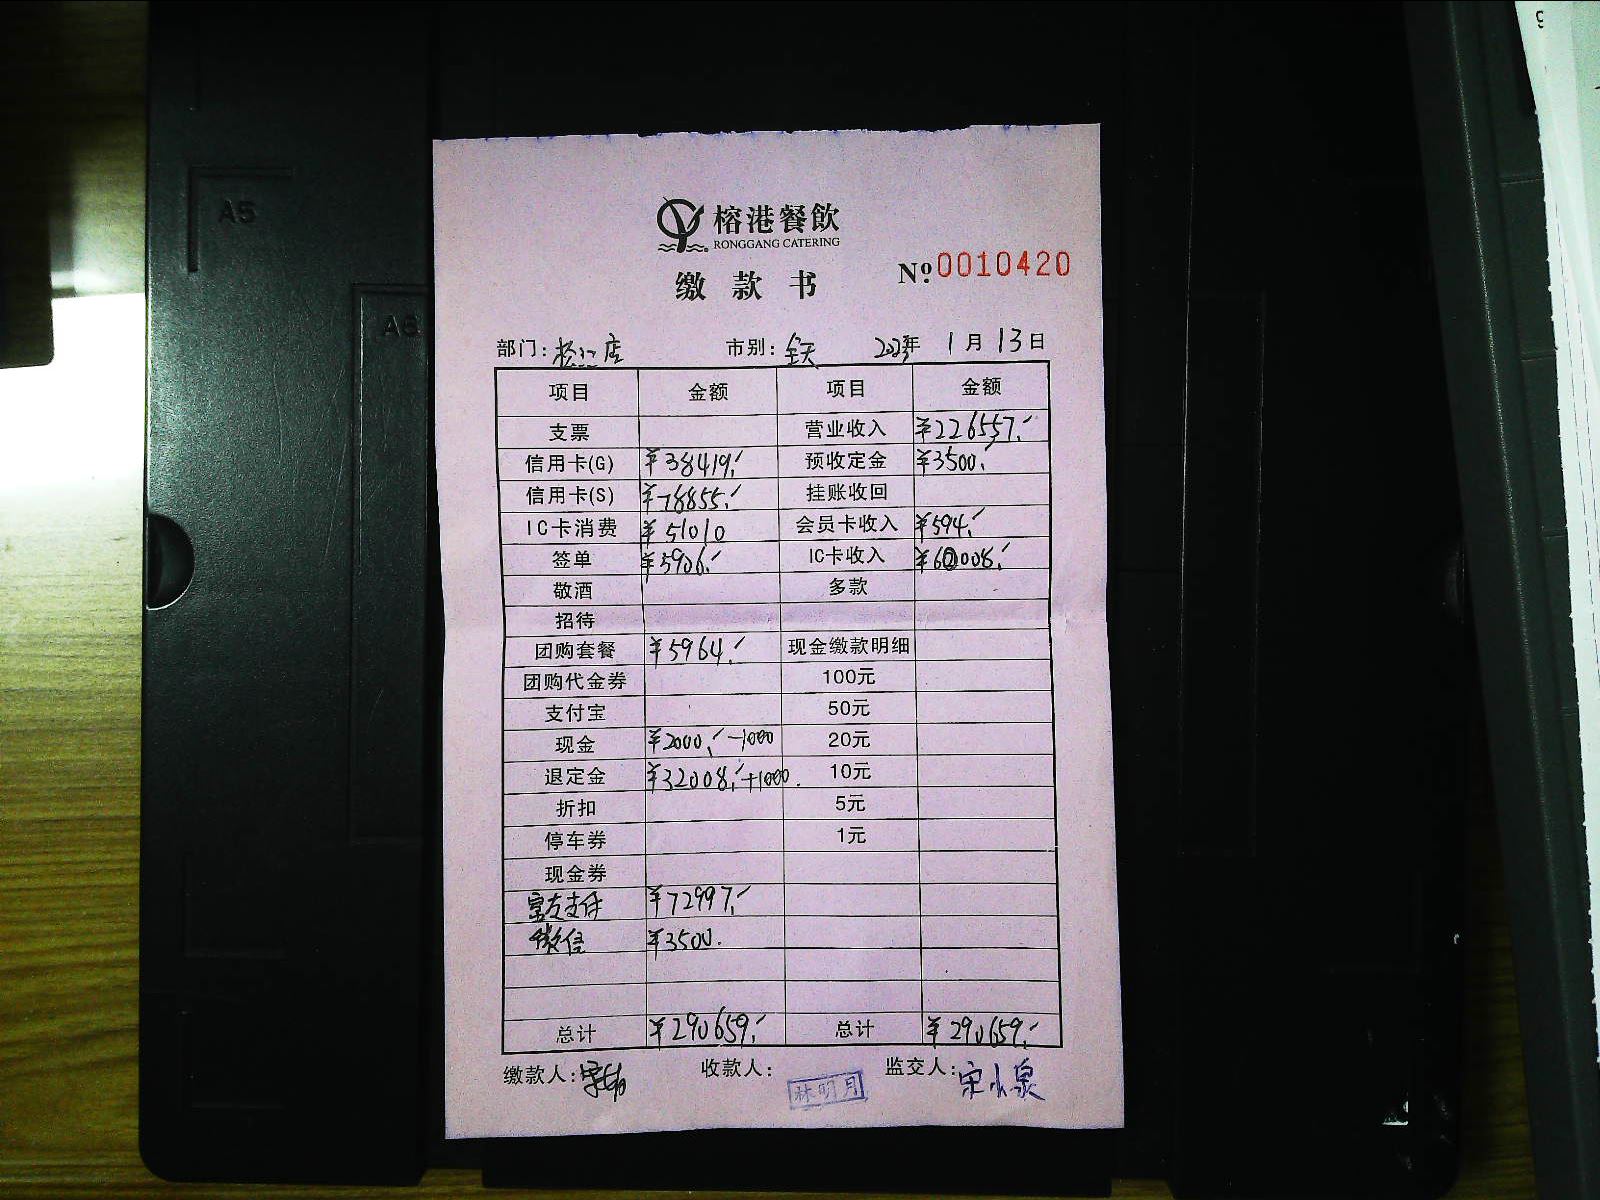 A5
A6
9
榕港餐飲
RONGGANG CATERING
缴款书
№ 0010420
部门: 松江店 市别: 全天 2023年 1月13日
项目 金额 项目 金额
支票 营业收入 ¥226557.-
信用卡(G) ¥38419.- 预收定金 ¥3500.-
信用卡(S) ¥78855.- 挂账收回
IC卡消费 ¥51010 会员卡收入 ¥594.-
签单 ¥5906.- IC卡收入 ¥60008.-
敬酒 多款
招待
团购套餐 ¥5964.- 现金缴款明细
团购代金券 100元
支付宝 50元
现金 ¥2000.- -1000 20元
退定金 ¥32008.- +1000. 10元
折扣 5元
停车券 1元
现金券
富友支付 ¥72997.-
微信 ¥3500.
总计 ¥290659.- 总计 ¥290659.-
缴款人: 收款人: 林明月 监交人: 宋小泉